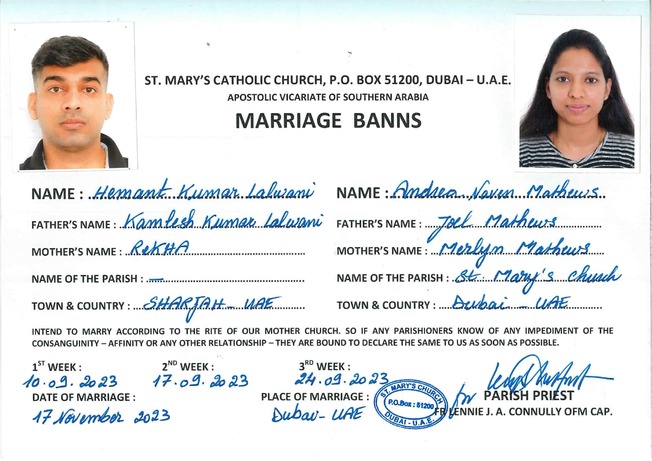 ST. MARY'S CATHOLIC CHURCH, P.O. BOX 51200, DUBAI – U.A.E.
APOSTOLIC VICARIATE OF SOUTHERN ARABIA
MARRIAGE BANNS
NAME : Hemant Kumar Lalwani
FATHER'S NAME : Kamlesh Kumar Lalwani
MOTHER'S NAME : ReKHA
NAME OF THE PARISH : —
TOWN & COUNTRY : SHARJAH - UAE
NAME : Andrea Naven Mathews
FATHER'S NAME : Joel Mathews
MOTHER'S NAME : Merlyn Mathews
NAME OF THE PARISH : St Mary's church
TOWN & COUNTRY : Dubai - UAE
INTEND TO MARRY ACCORDING TO THE RITE OF OUR MOTHER CHURCH. SO IF ANY PARISHIONERS KNOW OF ANY IMPEDIMENT OF THE
CONSANGUINITY – AFFINITY OR ANY OTHER RELATIONSHIP – THEY ARE BOUND TO DECLARE THE SAME TO US AS SOON AS POSSIBLE.
1ST WEEK : 2ND WEEK : 3RD WEEK :
10.09.2023 17.09.2023 24.09.2023
DATE OF MARRIAGE : PLACE OF MARRIAGE :
17 November 2023 Dubai - UAE
ST. MARY'S CHURCH
P.O.Box : 51200
DUBAI - U.A.E.
for PARISH PRIEST
FR LENNIE J. A. CONNULLY OFM CAP.